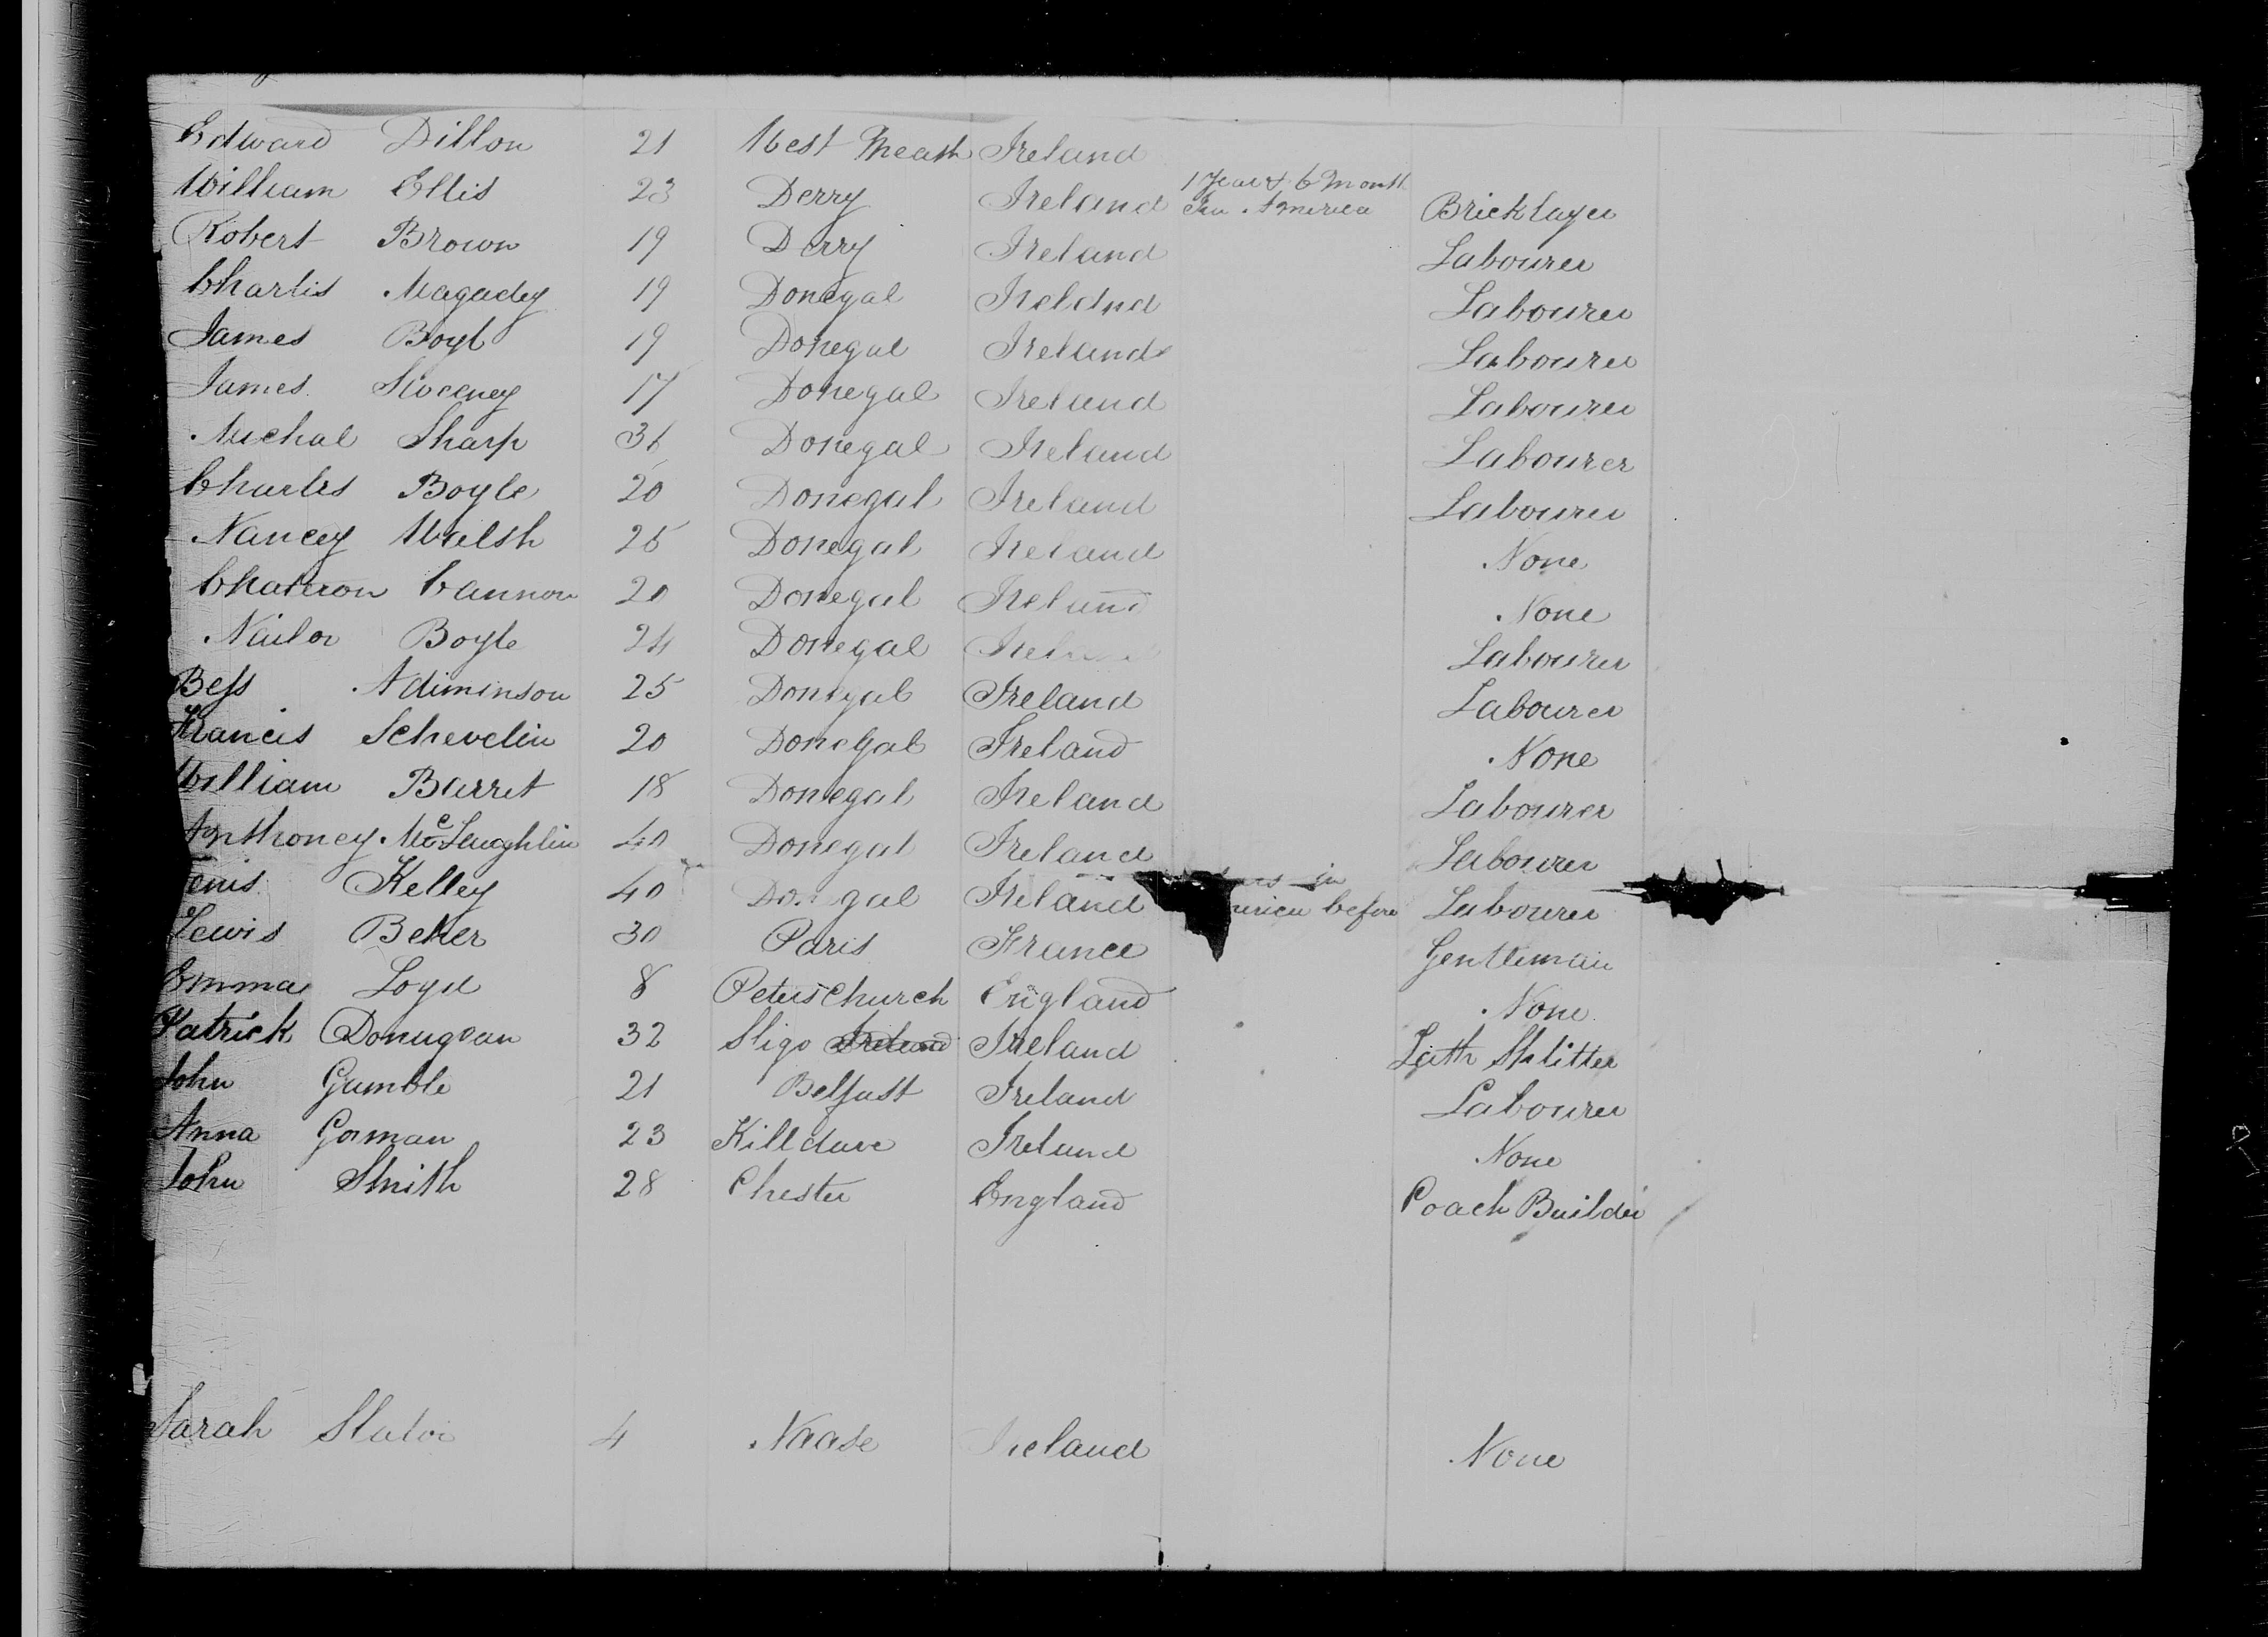 Edward Dillon 21 West Meath Ireland
William Ellis 23 Derry Ireland 1 Year & 6 Month In America Bricklayer
Robert Brown 19 Derry Ireland Labourer
Charles Magadey 19 Donegal Ireland Labourer
James Boyl 19 Donegal Ireland Labourer
James Sweeney 17 Donegal Ireland Labourer
Michal Sharp 36 Donegal Ireland Labourer
Charles Boyle 20 Donegal Ireland Labourer
Nancey Walsh 25 Donegal Ireland None
Chateron Cannon 20 Donegal Ireland None
Nailor Boyle 24 Donegal Ireland Labourer
Bess Adiminson 25 Donegal Ireland Labourer
Francis Schevelin 20 Donegal Ireland None
William Barret 18 Donegal Ireland Labourer
Anthoney McLaughlin 40 Donegal Ireland Labourer
Kelley 40 Donegal Ireland in before Labourer
Lewis Beker 30 Paris France Gentleman
Emma Loyd 8 Peterschurch England None
Patrick Donugean 32 Sligo Ireland Ireland Lath Splitter
John Gamble 21 Belfast Ireland Labourer
Anna Gorman 23 Killdare Ireland None
John Smith 28 Chester England Coach Builder
Sarah Slator 4 Naase Ireland None